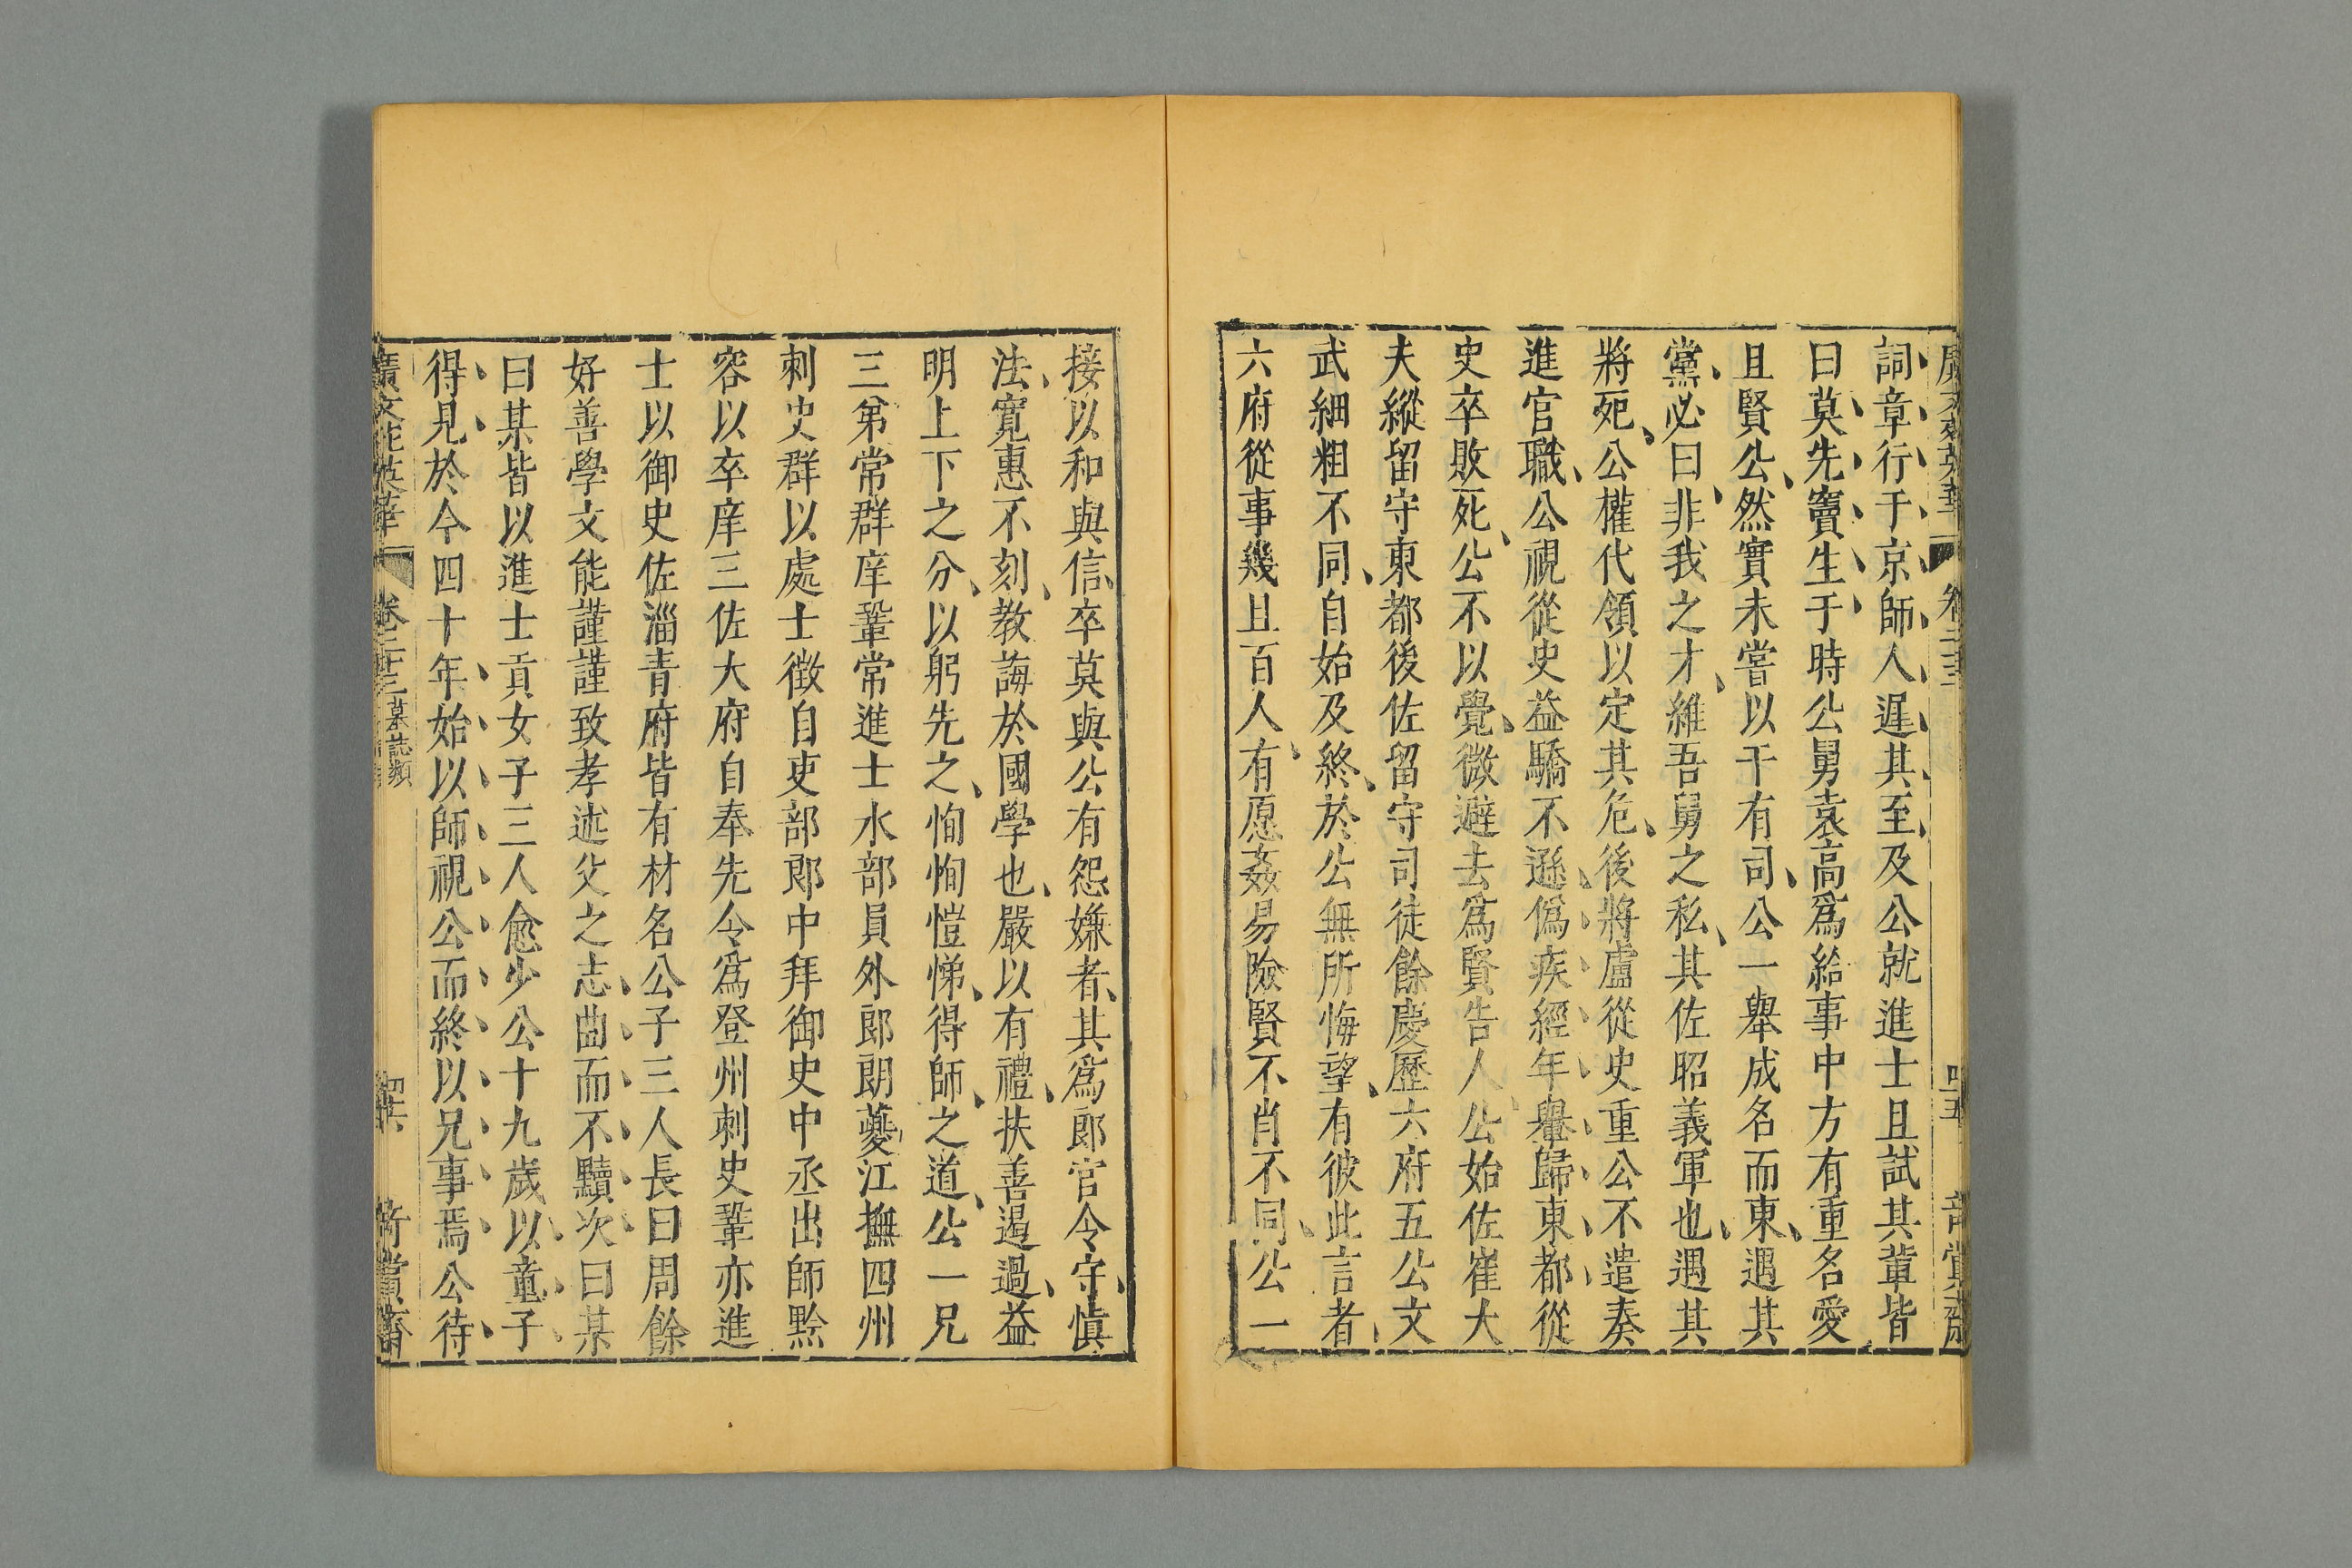 詞章行于京師人遲其至及公就進士且試其軰皆
曰莫先竇生于時公舅袁高爲給事中方有重名愛
且賢公然實未嘗以干有司公一舉成名而東遇其
黨必曰非我之才維吾舅之私其佐昭義軍也遇其
將死公權代領以定其危後將盧從史重公不遣奏
進官職公視從史益驕不遜僞疾經年轝歸東都從
史卒敗死公不以覺微避去爲賢告人公始佐崔大
夫縱留守東都後佐留守司徒餘慶歷六府五公文
武細粗不同自始及終於公無所悔望有彼此言者
六府從事幾且百人有愿姦易險賢不肖不同公一
接以和與信卒莫與公有怨嫌者其爲郎官令守慎
法寛惠不刻教誨於國學也嚴以有禮扶善遏過益
明上下之分以躬先之恂恂愷悌得師之道公一兄
三弟常群庠鞏常進士水部員外郎朗夔江撫四州
刺史群以處士徴自吏部郎中拜御史中丞出師黔
容以卒庠三佐大府自奉先令爲登州刺史鞏亦進
士以御史佐淄青府皆有材名公子三人長曰周餘
好善學文能謹謹致孝述父之志曲而不黷次曰某
曰某皆以進士貢女子三人愈少公十九歲以童子
得見於今四十年始以師視公而終以兄事焉公待
廣文苑英華 卷二十三 墓誌類